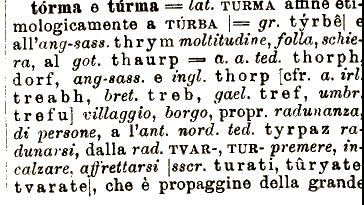 tórma e túrma = lat. TURMA affine eti-
mologicamente a TÚRBA |= gr. týrbê| e
all'ang-sass. thrym moltitudine, folla, schie-
ra, al got. thaurp = a. a. ted. thorph
dorf, ang-sass. e ingl. thorp [cfr. a. irl.
treabh, bret. treb, gael. tref, umbr.
trefu] villaggio, borgo, propr. radunanza
di persone, a l'ant. nord. ted. tyrpaz ra
dunarsi, dalla rad. TVAR-, TUR- premere, in-
calzare, affrettarsi |sscr. turati, tûryate
tvarate|, che è propaggine della grande